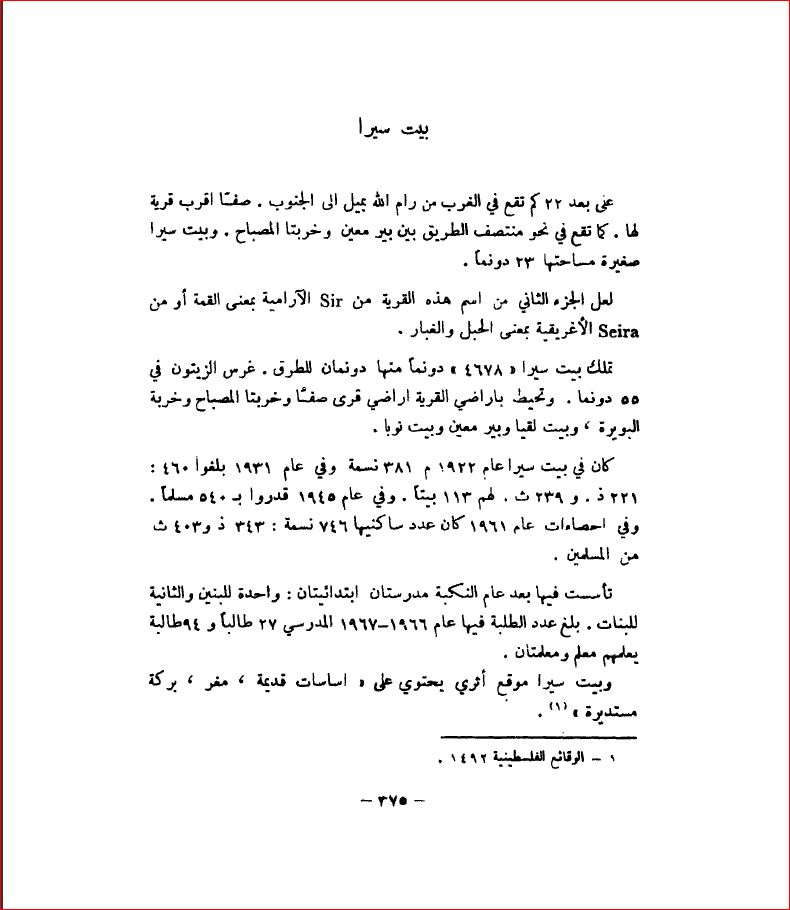 بيت سيرا
على بعد ٢٢ كم تقع في الغرب من رام الله بميل الى الجنوب . صفّا اقرب قرية
لها . كما تقع في نحو منتصف الطريق بين بير معين وخربتا المصباح . وبيت سيرا
صغيرة مساحتها ٢٣ دونماً .
لعل الجزء الثاني من اسم هذه القرية من Sir الآرامية بمعنى القمة أو من
Seira الأغريقية بمعنى الحبل والغبار .
تملك بيت سيرا « ٤٦٧٨ » دونماً منها دونمان للطرق . غرس الزيتون في
٥٥ دونما . وتحيط باراضي القرية اراضي قرى صفّا وخربتا المصباح وخربة
البويرة ، وبيت لقيا وبير معين وبيت نوبا .
كان في بيت سيرا عام ١٩٢٢ م ٣٨١ نسمة وفي عام ١٩٣١ بلغوا ٤٦٠ :
٢٢١ ذ . و ٢٣٩ ث . لهم ١١٣ بيتاً . وفي عام ١٩٤٥ قدروا بـ ٥٤٠ مسلماً .
وفي احصاءات عام ١٩٦١ كان عدد ساكنيها ٧٤٦ نسمة : ٣٤٣ ذ و٤٠٣ ث
من المسلمين .
تأسست فيها بعد عام النكبة مدرستان ابتدائيتان : واحدة للبنين والثانية
للبنات . بلغ عدد الطلبة فيها عام ١٩٦٦–١٩٦٧ المدرسي ٢٧ طالباً و ٩٤طالبة
يعلمهم معلم ومعلمتان .
وبيت سيرا موقع أثري يحتوي على « اساسات قديمة ، مغر ، بركة
مستديرة » (١) .
١ – الوقائع الفلسطينية ١٤٩٢ .
– ٣٧٥ –